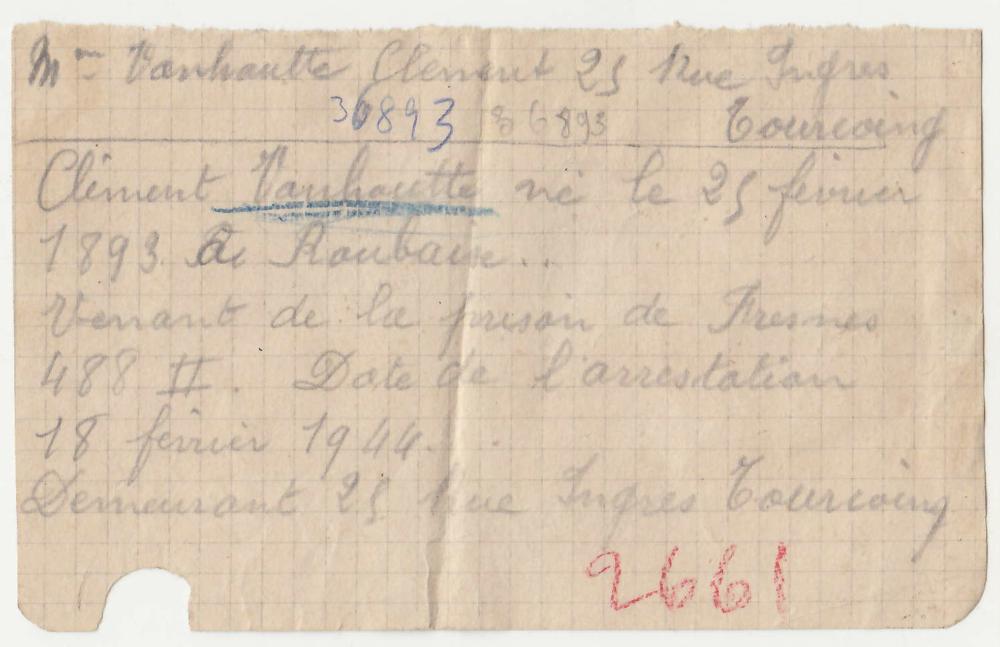 Mme Vanhoutte Clément 25 Rue Ingres
30893 36893 Tourcoing
Clément Vanhoutte né le 25 février
1893 à Roubaix..
Venant de la prison de Fresnes
488 II. Date de l'arrestation
18 février 1944..
Demeurant 25 Rue Ingres Tourcoing
2661